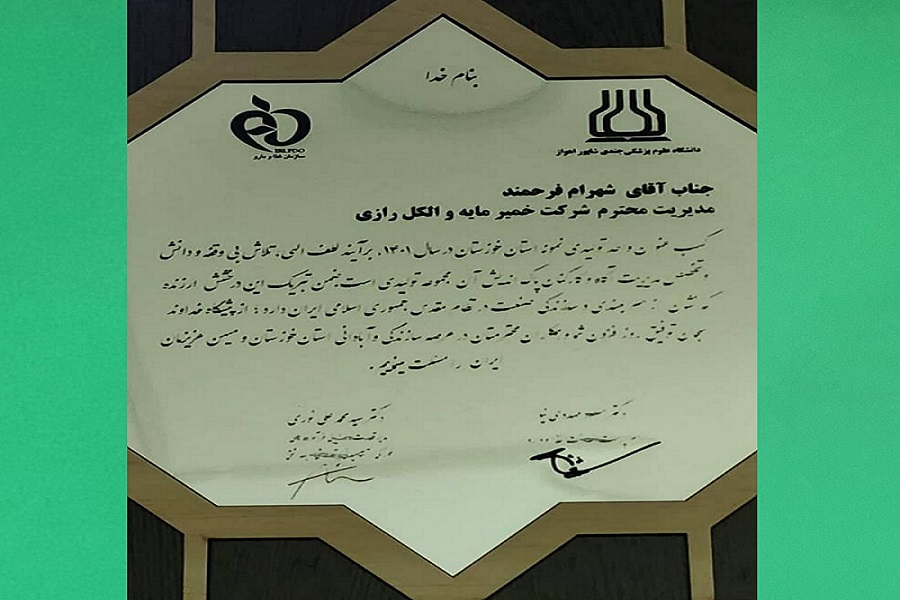 بنام خدا
IRI.FDO
سازمان غذا و دارو
دانشگاه علوم پزشکی جندی شاپور اهواز
جناب آقای شهرام فرحمند
مدیریت محترم شرکت خمیر مایه و الکل رازی
کسب عنوان واحد تولیدی نمونه استان خوزستان در سال ۱۴۰۱، برآیند لطف الهی، تلاش بی وقفه و دانش
و تخصص مدیریت آگاه و کارکنان پاک اندیش آن مجموعه تولیدی است. ضمن تبریک این درخشش ارزنده
که نشان از سربلندی و سازندگی صنعت در نظام مقدس جمهوری اسلامی ایران دارد؛ از پیشگاه خداوند
سبحان توفیق روز افزون شما و همکاران محترمتان در عرصه سازندگی و آبادانی استان خوزستان و میهن عزیزمان
ایران را مسئلت مینماییم.
دکتر مهدوی نیا
دکتر سید محمد علی نوری